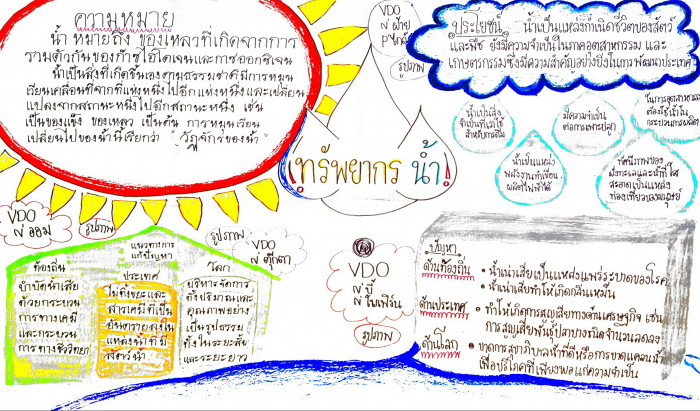 ความหมาย
น้ำ หมายถึง ของเหลวที่เกิดจากการ
รวมตัวกันของก๊าซไฮโดรเจนและก๊าซออกซิเจน
น้ำเป็นสิ่งที่เกิดขึ้นเองตามธรรมชาติมีการหมุน
เวียนเคลื่อนที่จากที่แห่งหนึ่งไปอีกแห่งหนึ่งและเปลี่ยน
แปลงจากสถานะหนึ่งไปอีกสถานะหนึ่ง เช่น
เป็นของแข็ง ของเหลว เป็นต้น การหมุนเวียน
เปลี่ยนไปของน้ำนี้เรียกว่า "วัฏจักรของน้ำ"
VDO
รูปภาพ
ประโยชน์ น้ำเป็นแหล่งกำเนิดชีวิตของสัตว์
และพืช ยังมีความจำเป็นในภาคอุตสาหกรรม และ
เกษตรกรรมซึ่งมีความสำคัญอย่างยิ่งในการพัฒนาประเทศ
น้ำเป็นสิ่ง
จำเป็นที่เราใช้
สำหรับการดื่ม
มีความจำเป็น
ต่อการเพาะปลูก
ในการอุตสาหกรรม
ต้องใช้น้ำใน
กระบวนการผลิต
น้ำเป็นแหล่ง
พลังงานทำเขื่อน
ผลิตไฟฟ้าได้
ทัศนียภาพของ
ฝั่งทะเลและน้ำที่ใส
สะอาดเป็นแหล่ง
ท่องเที่ยวของมนุษย์
!ทรัพยากร น้ำ!
VDO
ณ ออม
รูปภาพ
รูปภาพ
VDO
ณ ตุ๊กตา
แนวทางการ
แก้ปัญหา
ท้องถิ่น
บำบัดน้ำเสีย
ด้วยกระบวน
การทางเคมี
และกระบวน
การทางชีววิทยา
ประเทศ
ไม่ทิ้งขยะและ
สารเคมีที่เป็น
อันตรายลงใน
แหล่งน้ำที่มี
สัตว์น้ำ
โลก
บริหารจัดการ
ทั้งปริมาณและ
คุณภาพอย่าง
เป็นรูปธรรม
ทั้งในระยะสั้น
และระยะยาว
VDO
ณ บี
ณ ใบเฟิร์น
รูปภาพ
ปัญหา
ด้านท้องถิ่น
• น้ำเน่าเสียเป็นแหล่งแพร่ระบาดของโรค
• น้ำเน่าเสียทำให้เกิดกลิ่นเหม็น
ด้านประเทศ
• ทำให้เกิดการสูญเสียทางด้านเศรษฐกิจ เช่น
การสูญเสียพันธุ์ปลาบางชนิดจำนวนลดลง
ด้านโลก
• ขาดการสุขาภิบาลน้ำที่ดีหรือการขาดแคลนน้ำ
เพื่อบริโภคที่เพียงพอแก่ความจำเป็น